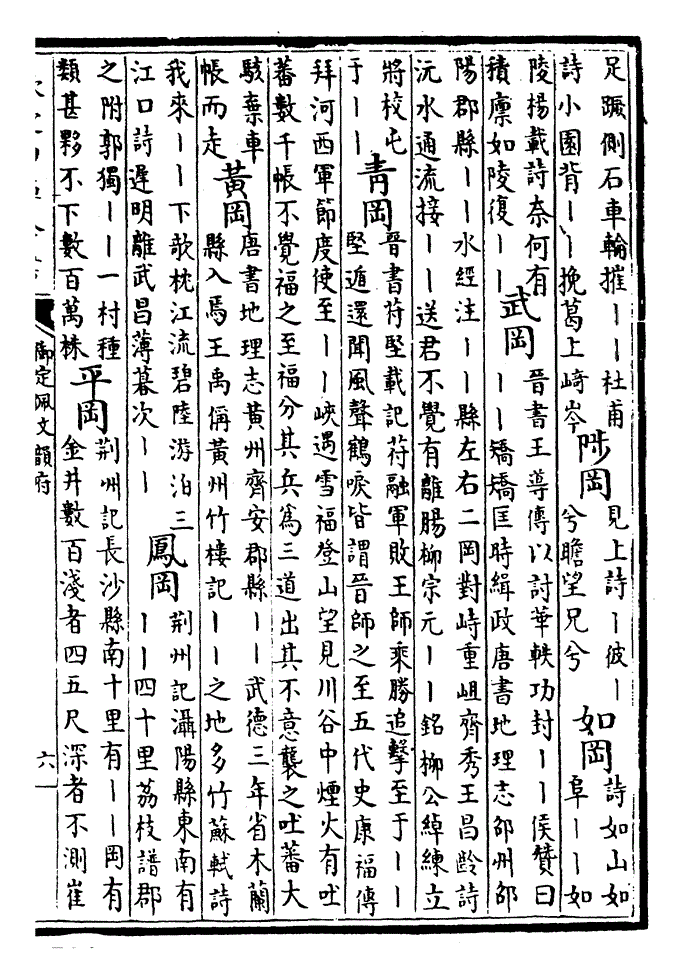 足蹶側石車輪摧丨丨杜甫
詩小園背丨丨挽葛上崎岑
陟岡
見上詩丨彼丨
兮瞻望兄兮
如岡
詩如山如
阜丨丨如
陵楊載詩奈何有
積廪如陵復丨丨
武岡
晉書王導傳以討華軼功封丨丨侯贊曰
丨丨矯矯匡時緝政唐書地理志邵州邵
陽郡縣丨丨水經注丨丨縣左右二岡對峙重岨齊秀王昌齡詩
沅水通流接丨丨送君不覺有離腸柳宗元丨丨銘柳公綽練立
將校屯
于丨丨
青岡
晉書苻堅載記苻融軍敗王師乘勝追擊至于丨丨
堅遁還聞風聲鶴唳皆謂晉師之至五代史康福傳
拜河西軍節度使至丨丨峽遇雪福登山望見川谷中煙火有吐
蕃數千帳不覺福之至福分其兵為三道出其不意襲之吐蕃大
駭棄車
帳而走
黃岡
唐書地理志黃州齊安郡縣丨丨武德三年省木蘭
縣入焉王禹偁黃州竹樓記丨丨之地多竹蘇軾詩
我來丨丨下欹枕江流碧陸游泊三
江口詩遲明離武昌薄暮次丨丨
鳳岡
荆州記灄陽縣東南有
丨丨四十里荔枝譜郡
之附郭獨丨丨一村種
類甚夥不下數百萬株
平岡
荆州記長沙縣南十里有丨丨岡有
金井數百淺者四五尺深者不測崔
御定佩文韻府
六